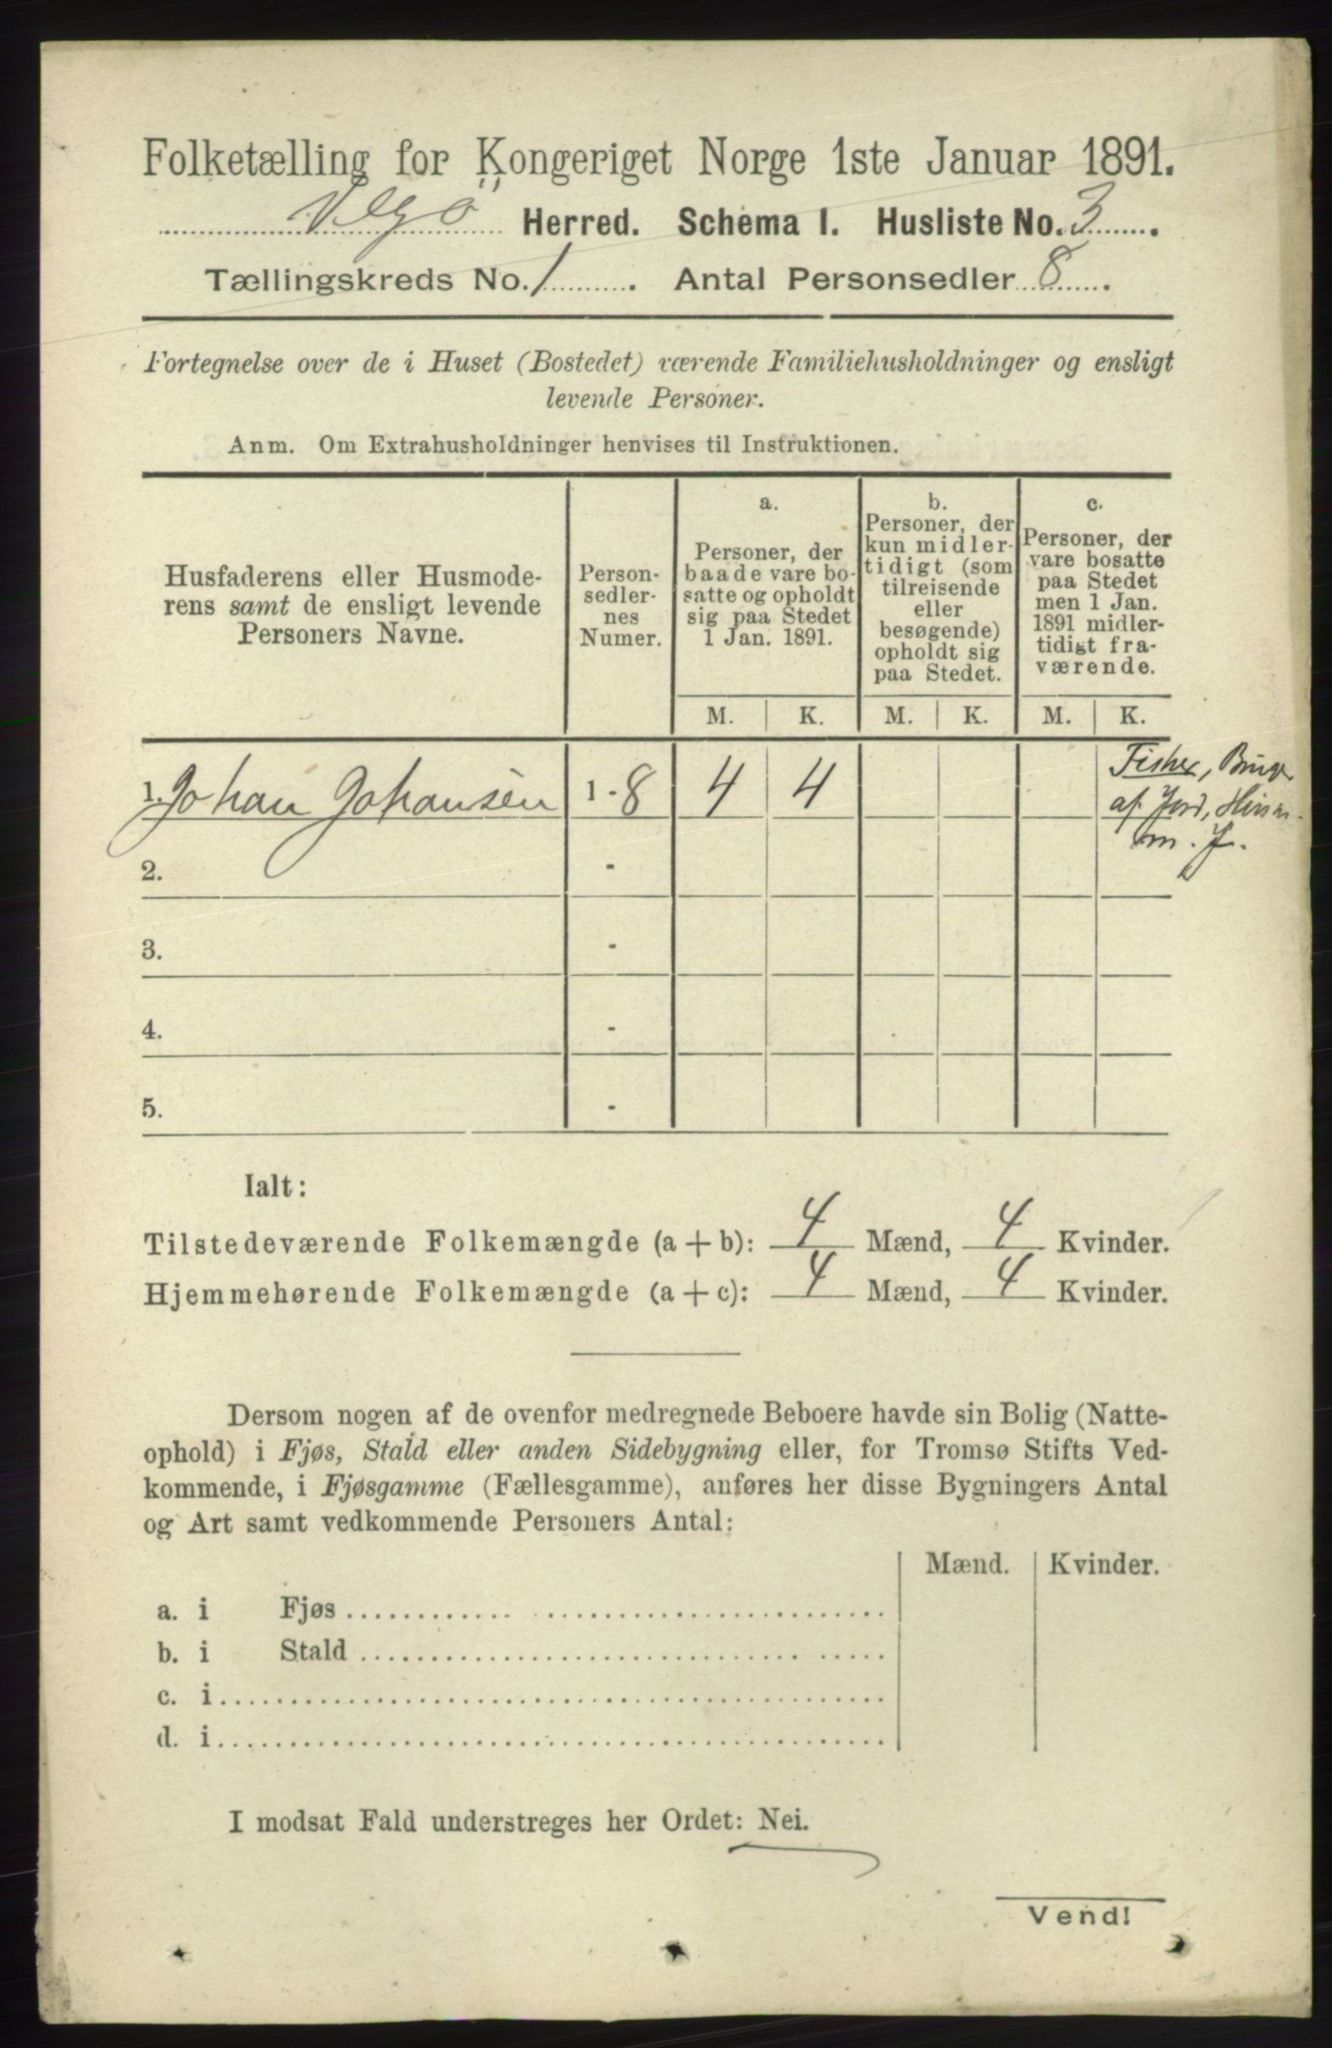 Folketælling for Kongeriget Norge 1ste Januar 1891.
Vegö Herred. Schema I. Husliste No. 3.
Tællingskreds No. 1. Antal Personsedler 8.
Fortegnelse over de i Huset (Bostedet) værende Familiehusholdninger og ensligt
levende Personer.
Anm. Om Extrahusholdninger henvises til Instruktionen.
Husfaderens eller Husmode-
rens samt de ensligt levende
Personers Navne.
Person-
sedler-
nes
Numer.
a.
Personer, der
baade vare bo-
satte og opholdt
sig paa Stedet
1 Jan. 1891.
b.
Personer, der
kun midler-
tidigt (som
tilreisende
eller
besøgende)
opholdt sig
paa Stedet.
c.
Personer, der
vare bosatte
paa Stedet
men 1 Jan.
1891 midler-
tidigt fra-
værende.
M. K. M. K. M. K.
1. Johan Johansen 1-8 4 4
Fisker, Brug
af Jord,
m. J.
2. -
3. -
4. -
5. -
Ialt:
Tilstedeværende Folkemængde (a + b): 4 Mænd, 4 Kvinder.
Hjemmehørende Folkemængde (a + c): 4 Mænd, 4 Kvinder.
Dersom nogen af de ovenfor medregnede Beboere havde sin Bolig (Natte-
ophold) i Fjøs, Stald eller anden Sidebygning eller, for Tromsø Stifts Ved-
kommende, i Fjøsgamme (Fællesgamme), anføres her disse Bygningers Antal
og Art samt vedkommende Personers Antal:
Mænd. Kvinder.
a. i Fjøs
b. i Stald
c. i
d. i
I modsat Fald understreges her Ordet: Nei.
Vend!